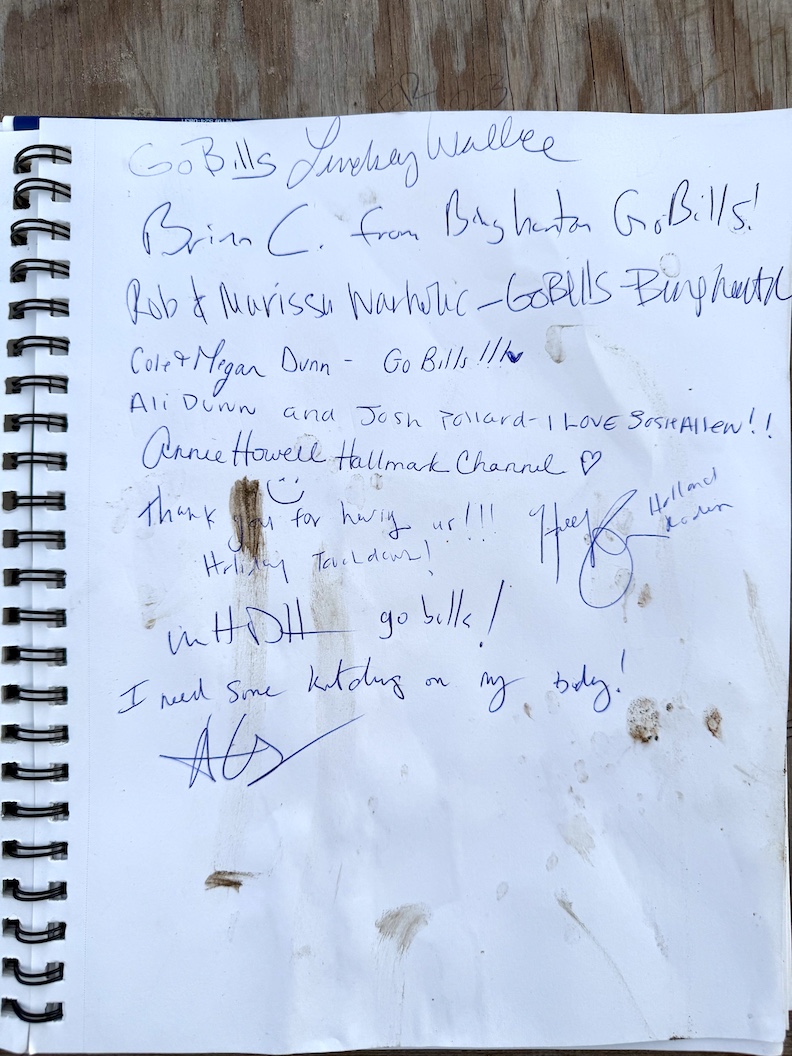 Go Bills Lindsay Wallce
Brian C. from Binghamton Go Bills!
Rob & Marissa Warholic - Go Bills - Binghamton
Cole & Megan Dunn - Go Bills!!!
Ali Dunn and Josh Pollard - I LOVE JOSH Allen!!
Annie Howell Hallmark Channel ♡
Thank you for having us!!!
Holland Roden
Holiday Touchdown!
go bills!
I need some ketchup on my body!